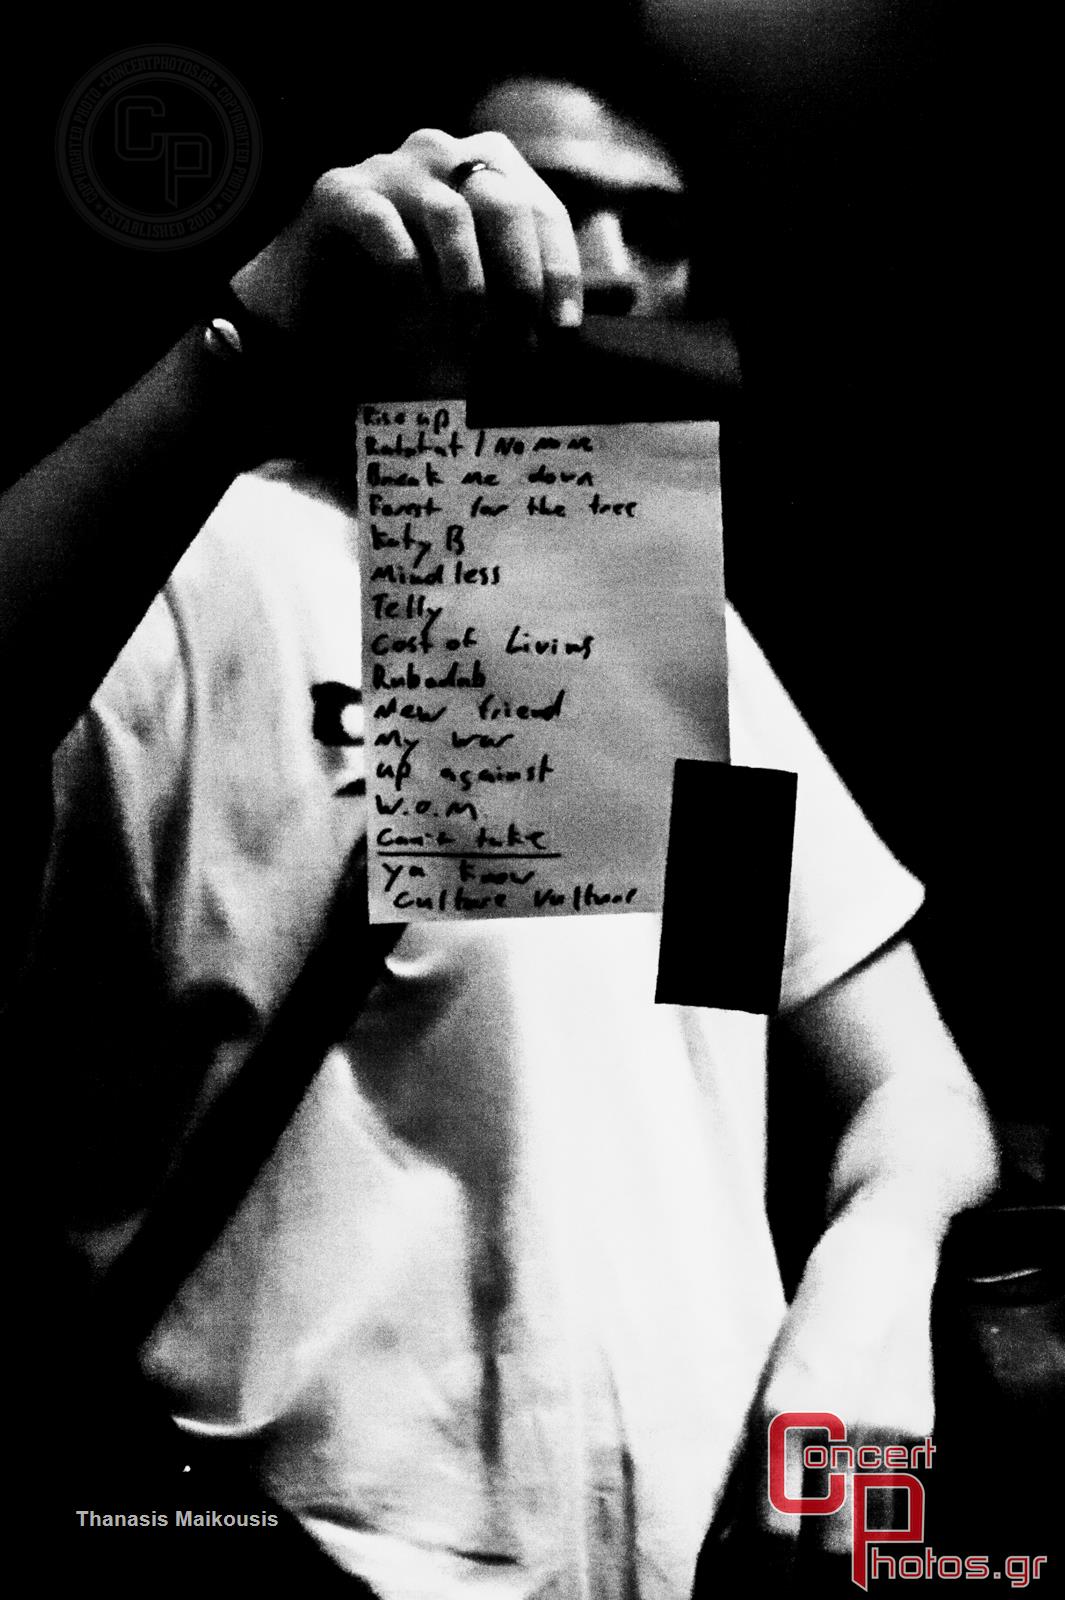 COPYRIGHTED PHOTO • CONCERTPHOTOS.GR • COPYRIGHTED PHOTO • ESTABLISHED 2010 •
CP
Rise up
Ratatat / No more
Break me down
Forest for the tree
Katy B
Mindless
Telly
Cost of Living
Rubadub
New friend
My war
up against
W.O.M
Can't take
ya know
Culture Vulture
Thanasis Maikousis
Concert
Photos.gr